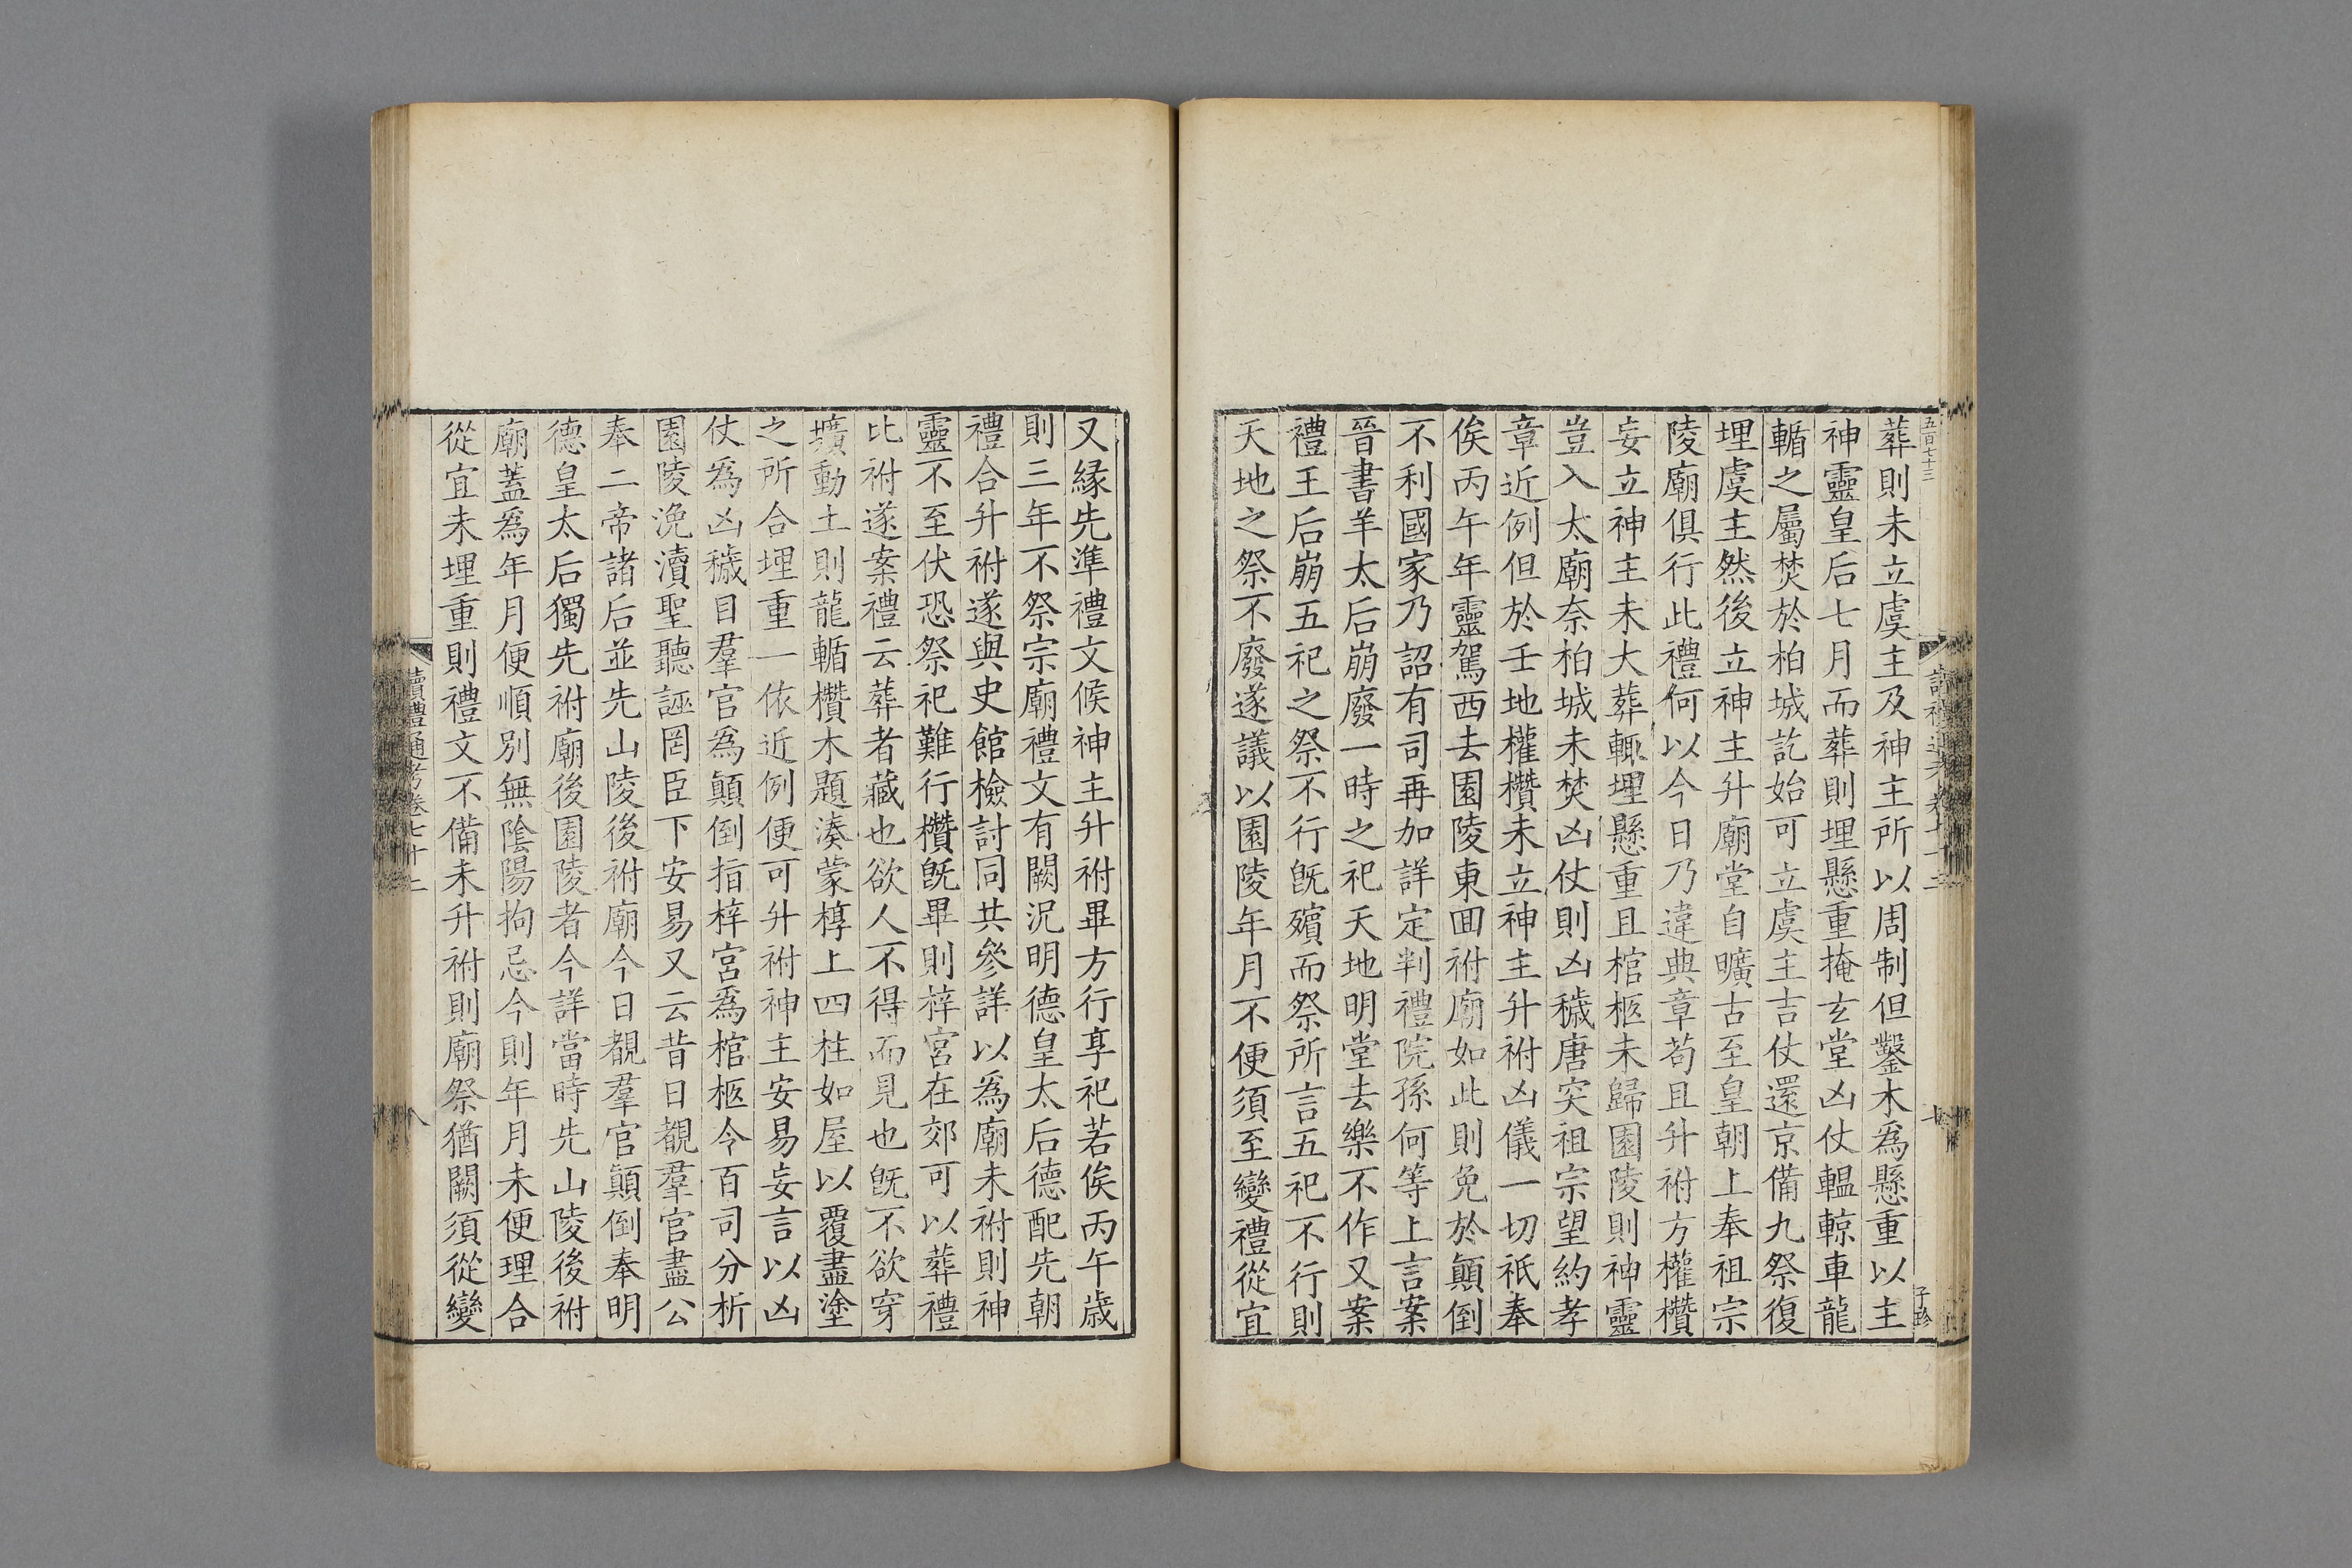 五百七十三
葬則未立虞主及神主所以周制但鑿木為懸重以主
神靈皇后七月而葬則埋懸重掩玄堂凶仗轀輬車龍
輴之屬焚於柏城訖始可立虞主吉仗還京備九祭復
埋虞主然後立神主升廟堂自曠古至皇朝上奉祖宗
陵廟俱行此禮何以今日乃違典章苟且升祔方權欑
妄立神主未大葬輙埋懸重且棺柩未歸園陵則神靈
豈入太廟奈柏城未焚凶仗則凶穢唐突祖宗望約孝
章近例但於壬地權欑未立神主升祔凶儀一切祇奉
俟丙午年靈駕西去園陵東回祔廟如此則免於顛倒
不利國家乃詔有司再加詳定判禮院孫何等上言案
晉書羊太后崩廢一時之祀天地明堂去樂不作又案
禮王后崩五祀之祭不行既殯而祭所言五祀不行則
天地之祭不廢遂議以園陵年月不便須至變禮從宜
又縁先準禮文候神主升祔畢方行享祀若俟丙午歳
則三年不祭宗廟禮文有闕況明德皇太后德配先朝
禮合升祔遂與史館檢討同共參詳以為廟未祔則神
靈不至伏恐祭祀難行欑既畢則梓宮在郊可以葬禮
比祔遂案禮云葬者藏也欲人不得而見也既不欲穿
壙動土則龍輴欑木題湊蒙椁上四柱如屋以覆盡塗
之所合埋重一依近例便可升祔神主安易妄言以凶
仗為凶穢目羣官為顛倒指梓宮為棺柩今百司分析
園陵浼瀆聖聽誣罔臣下安易又云昔日覩羣官盡公
奉二帝諸后並先山陵後祔廟今日覩羣官顛倒奉明
德皇太后獨先祔廟後園陵者今詳當時先山陵後祔
廟蓋為年月便順別無陰陽拘忌今則年月未便理合
從宜未埋重則禮文不備未升祔則廟祭猶闕須從變
讀禮通考卷七十二
八